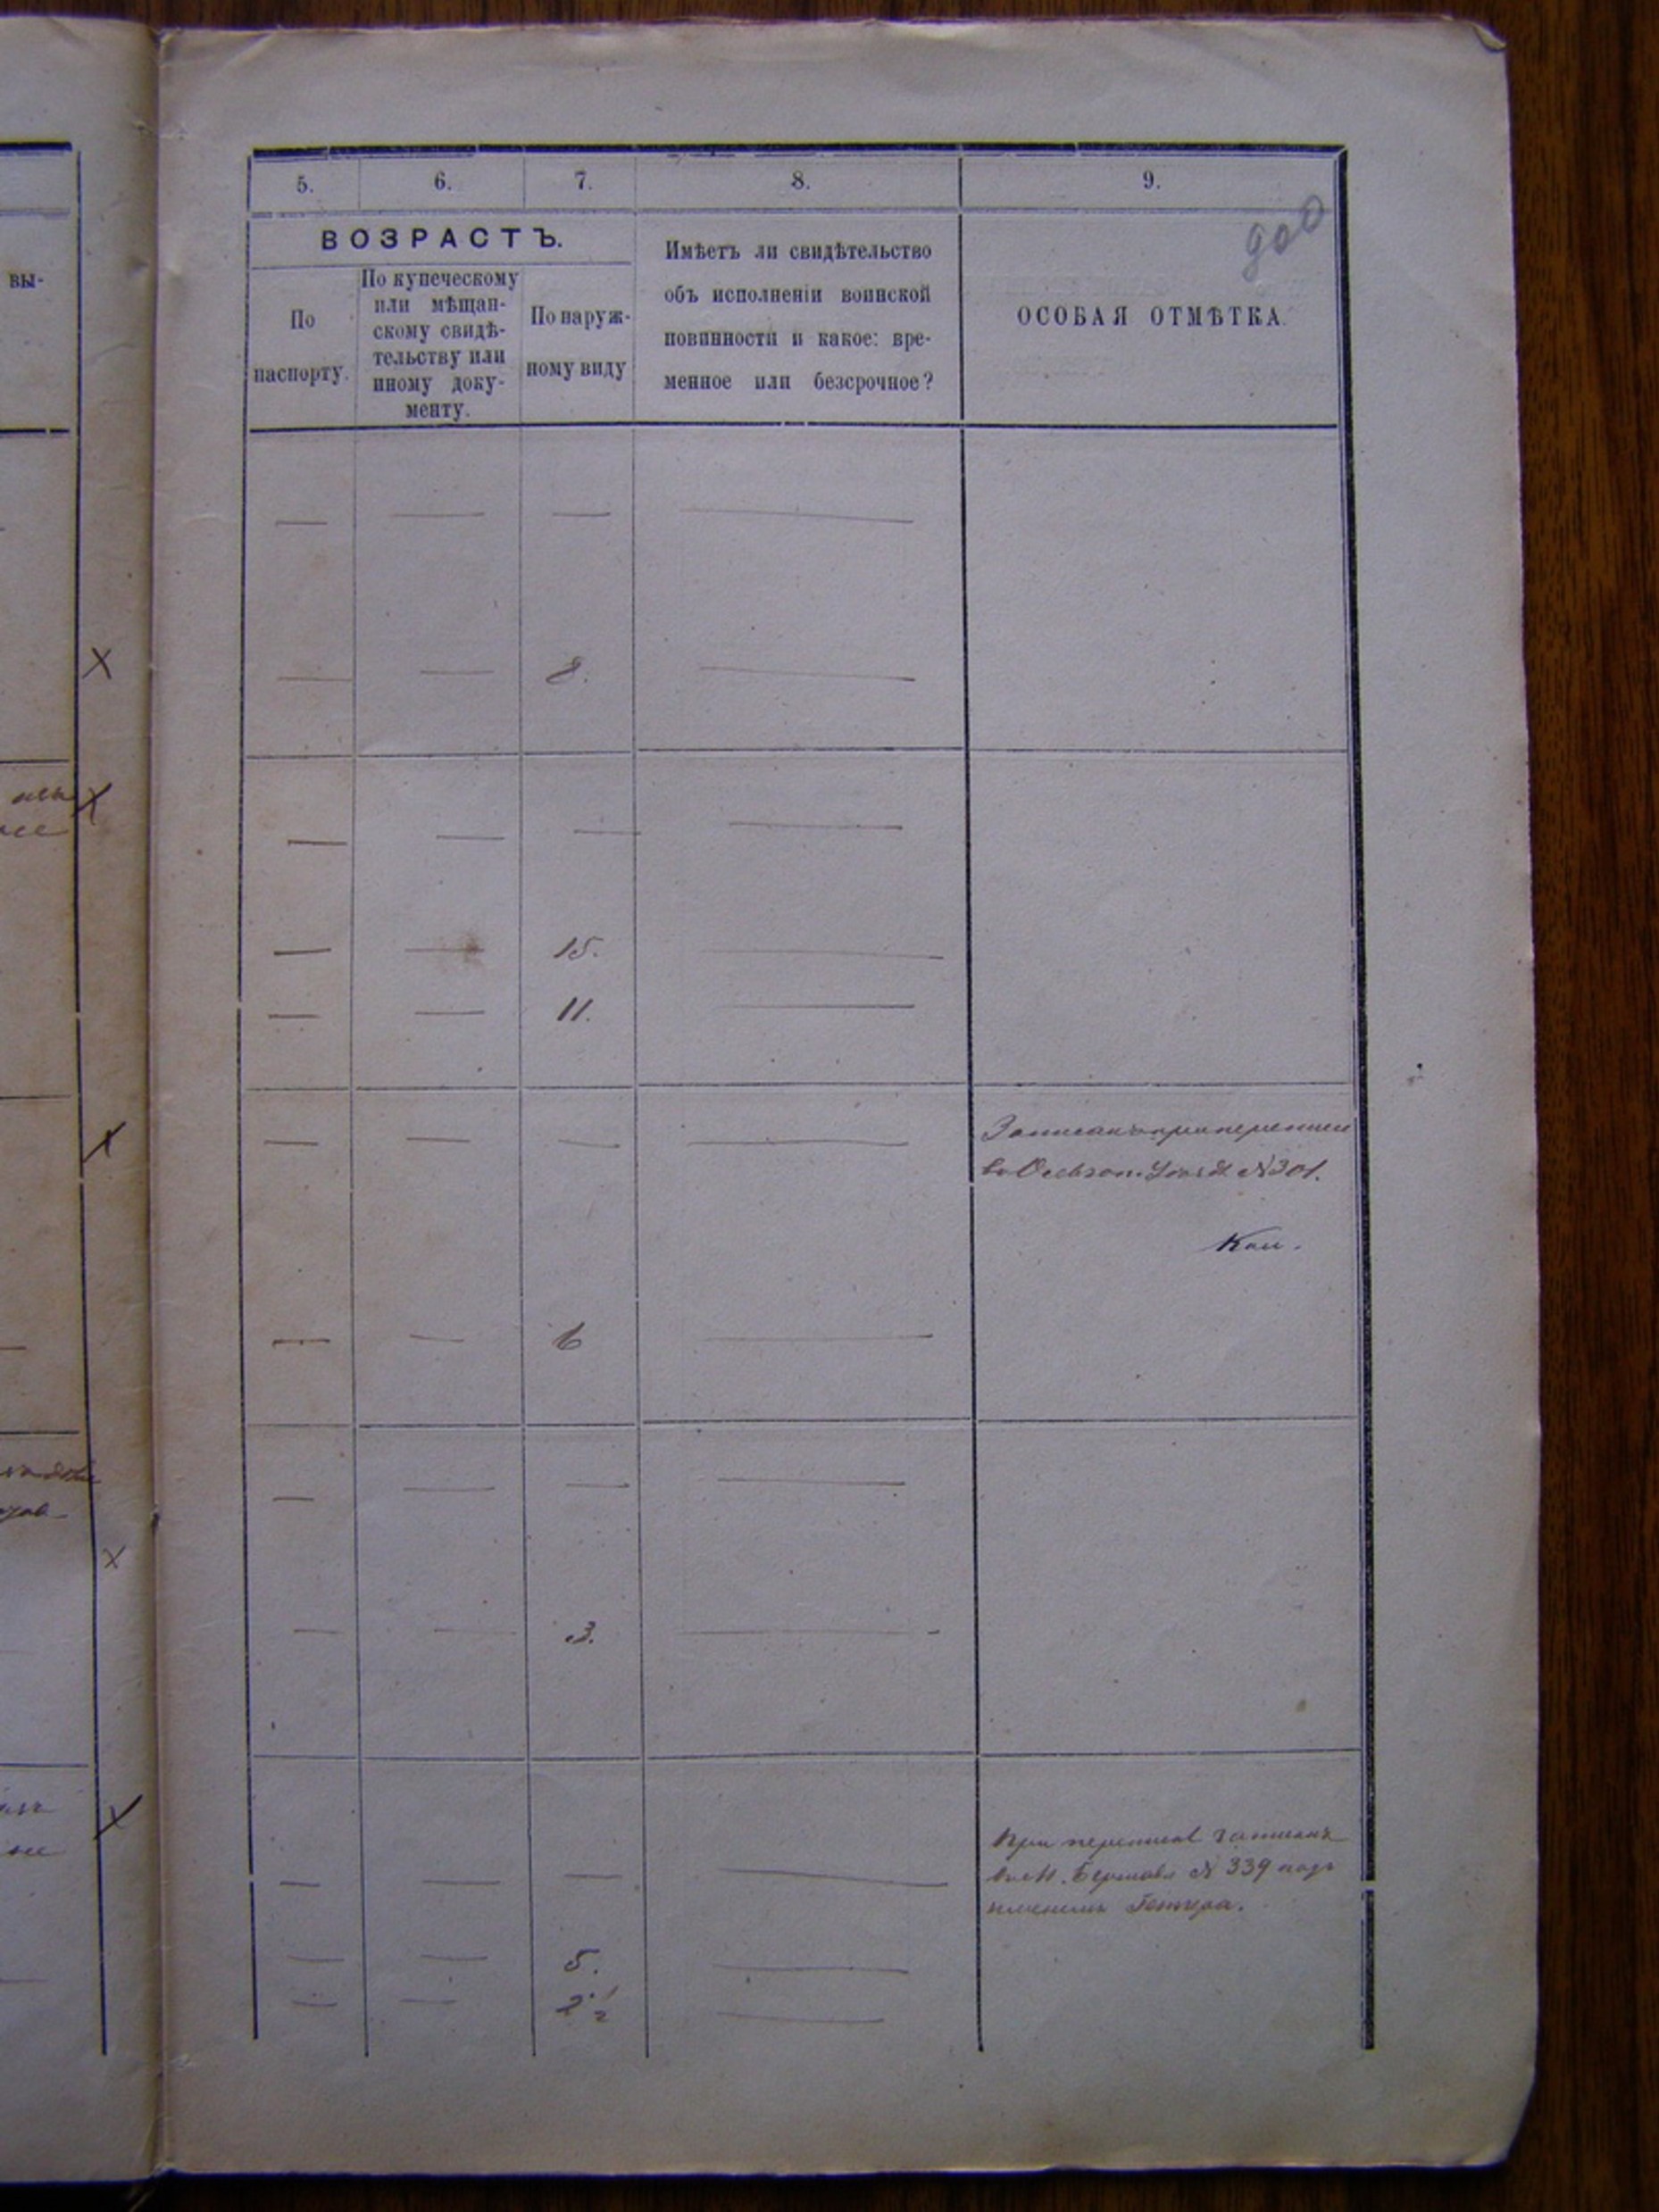 5. 6. 7. 8. 9.
900
ВОЗРАСТЪ.
вы-
По
паспорту.
По купеческому
или мѣщан-
скому свидѣ-
тельству или
иному доку-
менту.
По наруж-
ному виду
Имѣетъ ли свидѣтельство
объ исполненіи воинской
повинности и какое: вре-
менное или безсрочное?
ОСОБАЯ ОТМѢТКА.
— — — —
— — 8. —
— — — —
— — 15. —
— — 11. —
— — — —
Записанъ при переписи
№ 301.
— — 6 —
— — — —
— — 3. —
При переписи записанъ
№ 339 подъ
именемъ
— — — —
— — 5. —
— — 2 ½ —